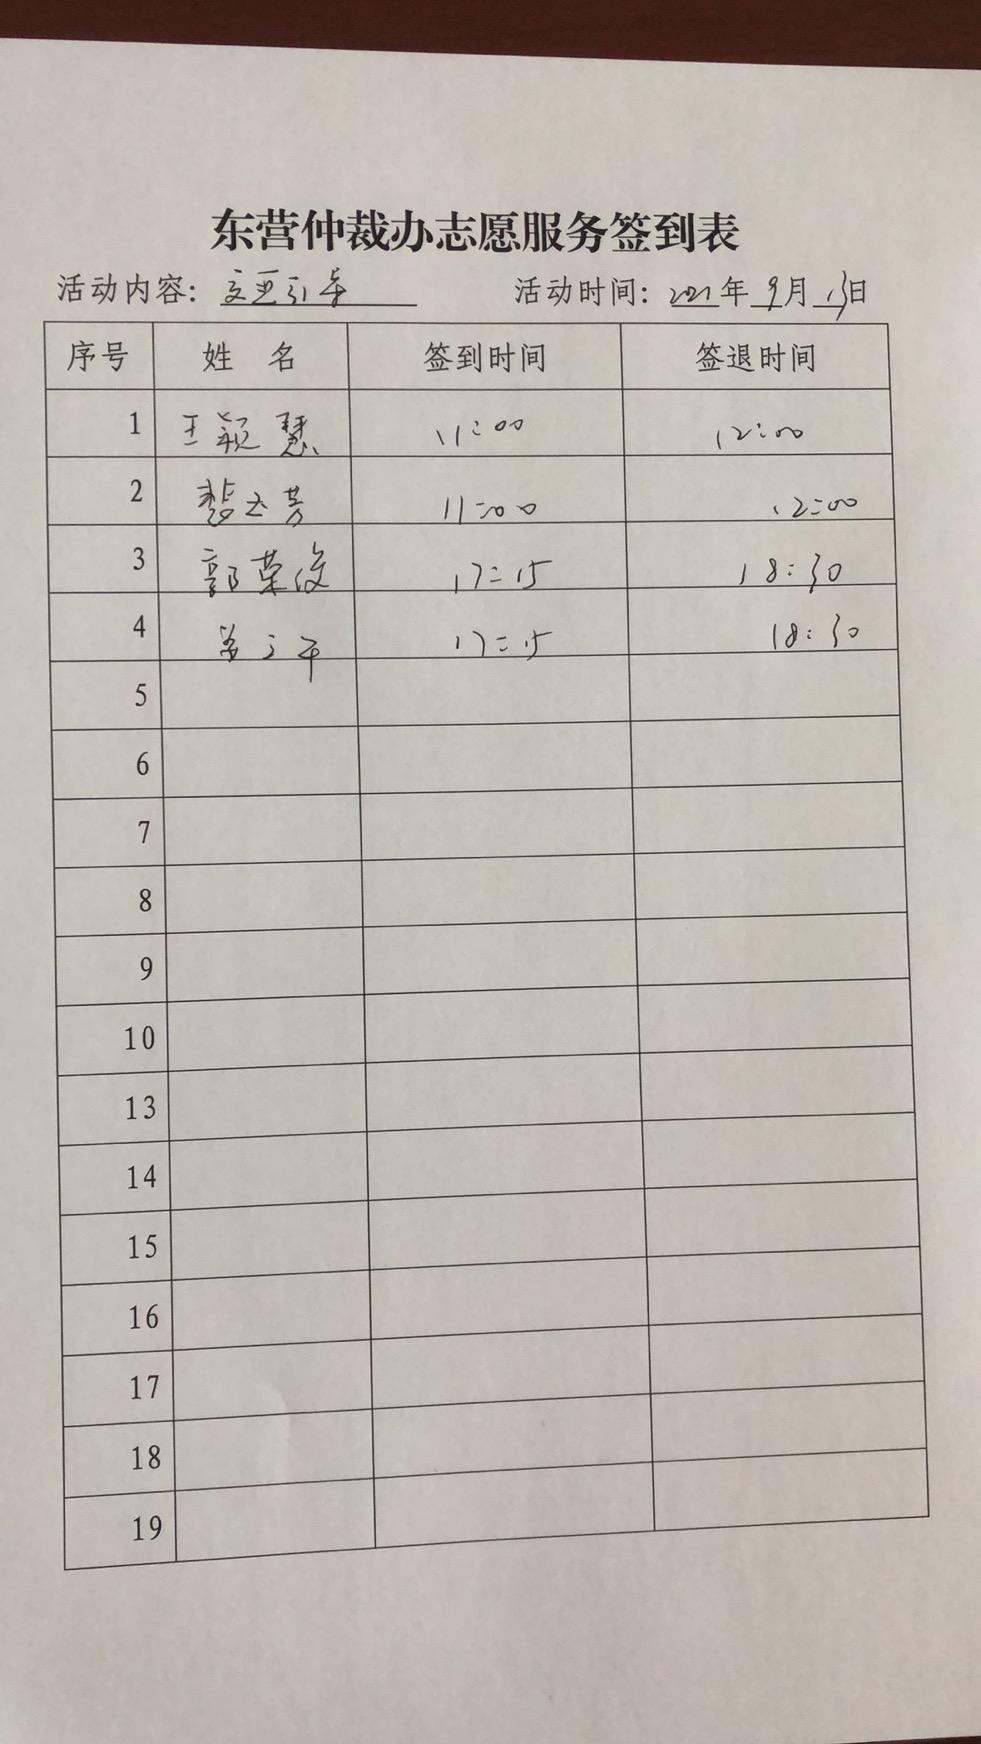 东营仲裁办志愿服务签到表
活动内容: 文亚引导 活动时间: 2021年9月13日
序号 姓 名 签到时间 签退时间
1 王颖慧 11:00 12:00
2 11:00 12:00
3 郭荣俊 17:15 18:30
4 17:15 18:30
5
6
7
8
9
10
13
14
15
16
17
18
19